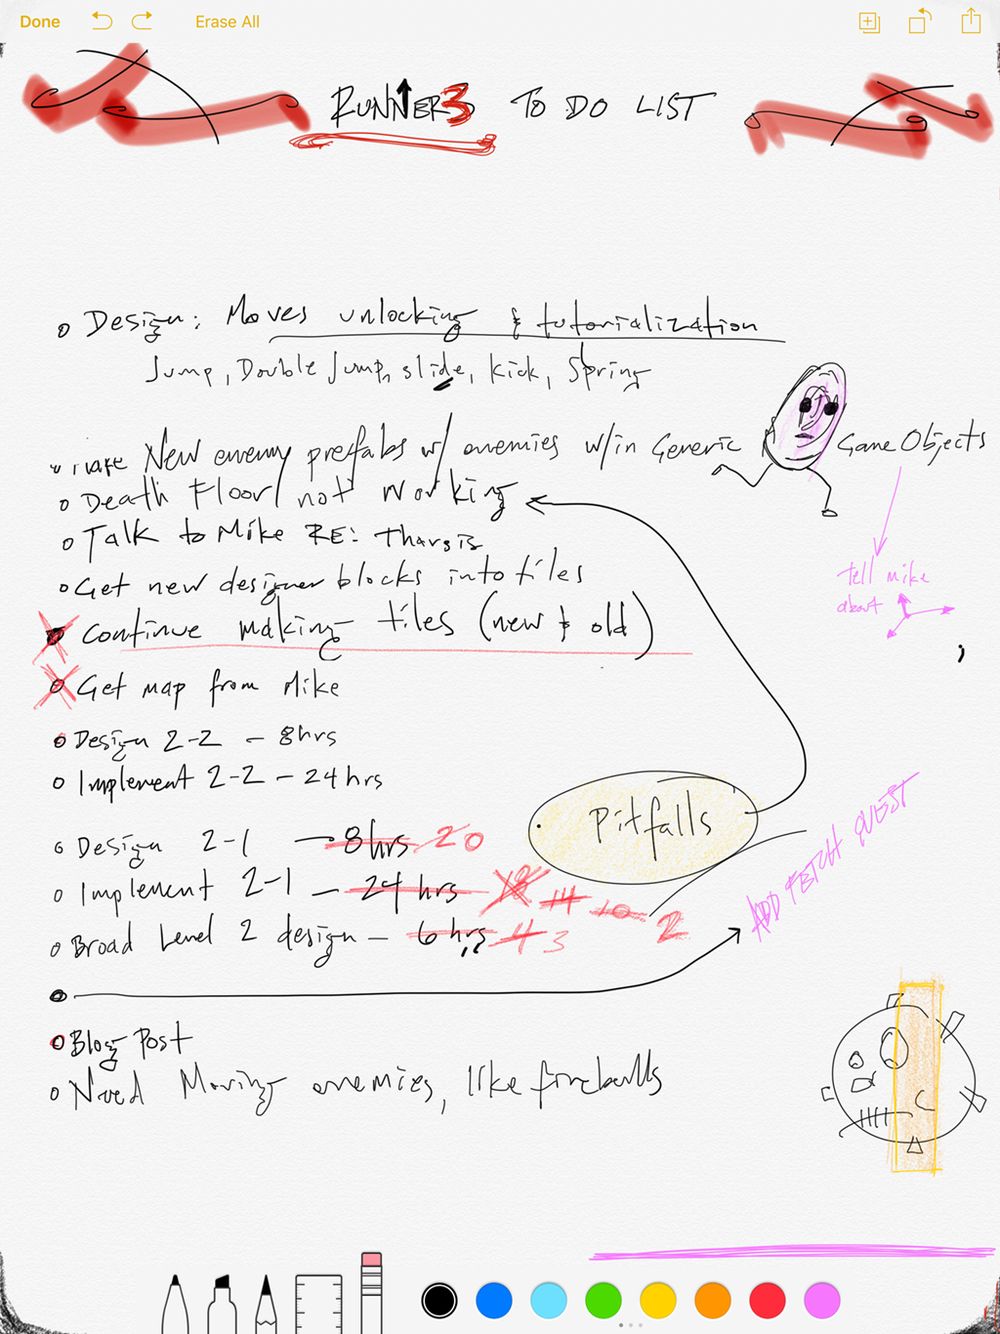 Done
Erase All
RUNNER3 TO DO LIST
Design: Moves unlocking & tutorialization
Jump, Double Jump, slide, kick, Spring
Make New enemy prefabs w/ enemies w/in Generic Game Objects
Death Floor not working
Talk to Mike RE: Tharsis
tell mike
about
Get new designer blocks into tiles
Continue making tiles (new & old)
Get map from Mike
Design 2-2 - 8hrs
Implement 2-2 - 24 hrs
Pitfalls
Design 2-1 - 8hrs 20
Implement 2-1 - 24 hrs 18 14 10 2
Broad Level 2 design - 6 hrs 4 3
ADD FETCH QUEST
Blog Post
Need Moving enemies, like fireballs